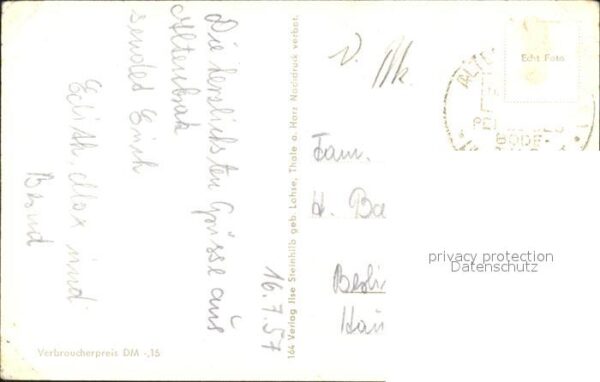 16.7.57
Die herzlichsten Grüsse aus
Altenbrak
sendet Euch
Edith, Max und
Bernd
Verbraucherpreis DM -,15
164 Verlag Ilse Steinhilb geb. Lohse, Thale a. Harz Nachdruck verbot.
Echt Foto
ALTE
BODE-
Fam.
H. Ba
Berlin
privacy protection
Datenschutz